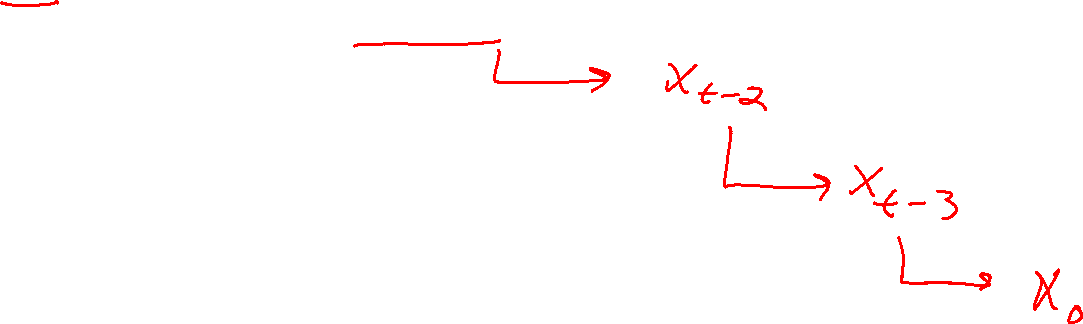 x_{t-2}
x_{t-3}
x_0